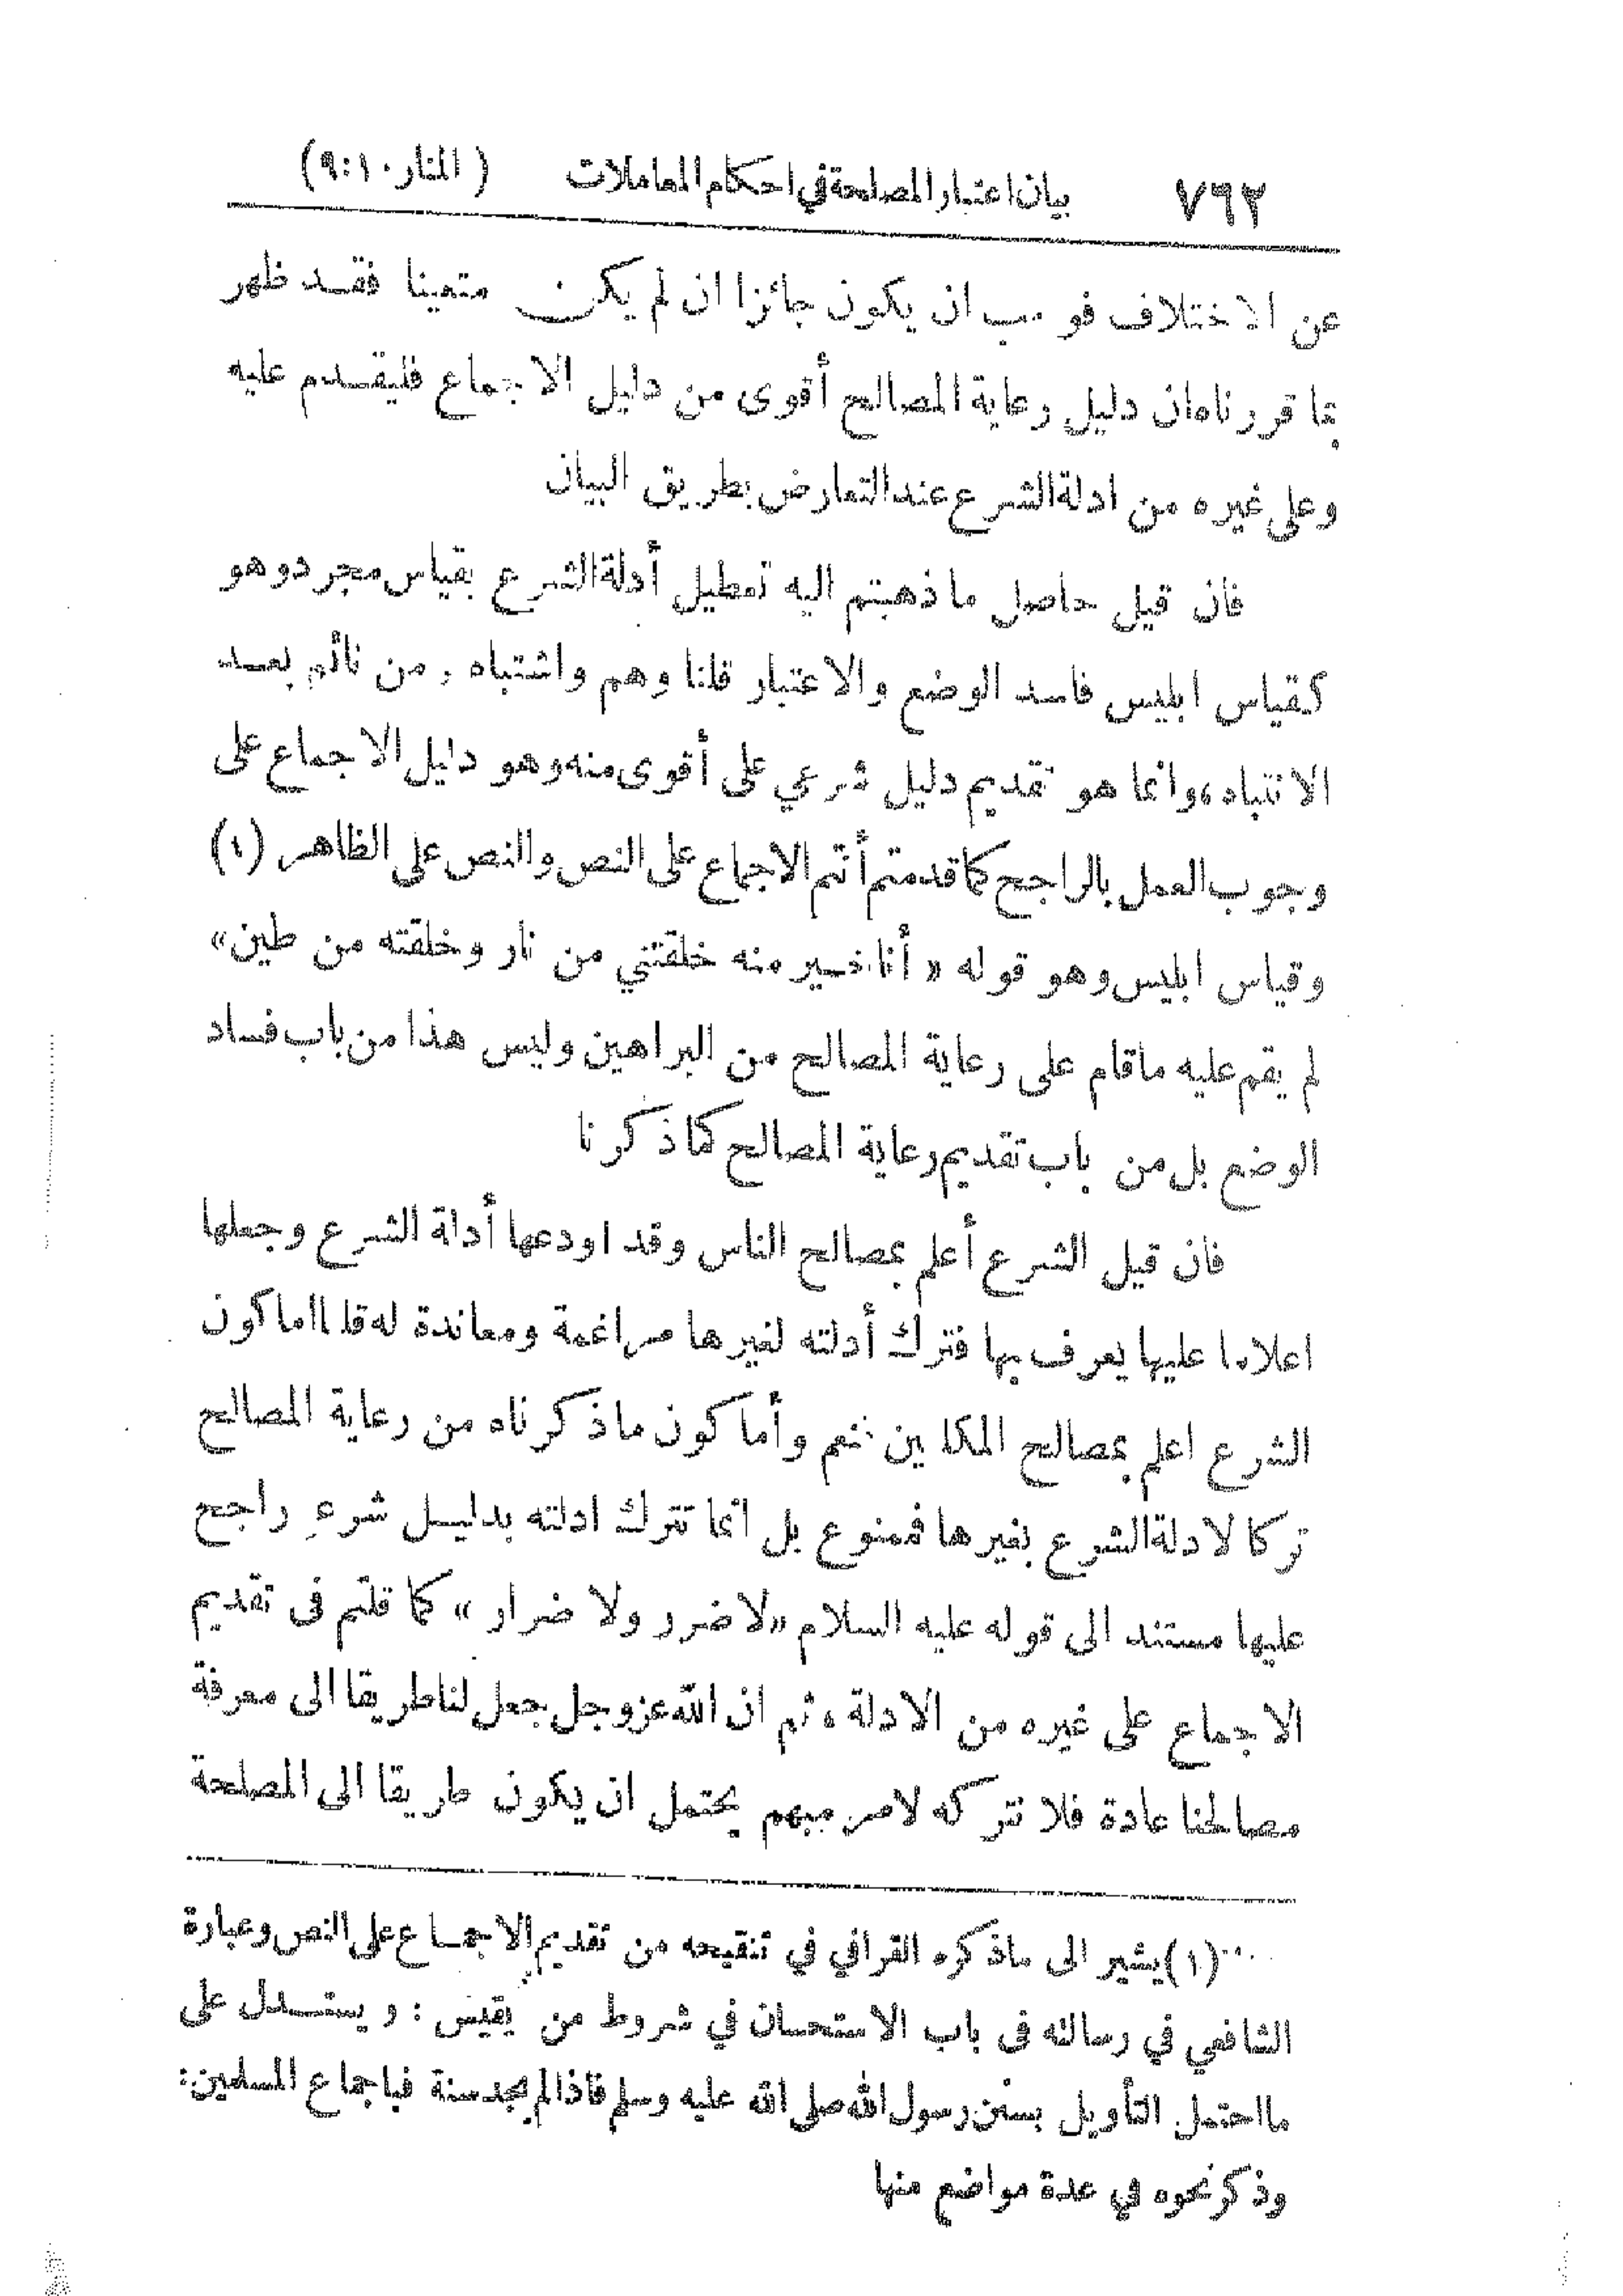 ٧٦٢ بيان اعتبار المصلحة في احكام المعاملات (المنار ١٠:٩)
عن الاختلاف فوجب ان يكون جائزا ان لم يكن متعينا فقد ظهر
بما قررناه ان دليل رعاية المصالح أقوى من دليل الاجماع فليقدم عليه
وعلى غيره من ادلة الشرع عند التعارض بطريق البيان
فان قيل حاصل ما ذهبتم اليه تعطيل أدلة الشرع بقياس مجرد وهو
كقياس ابليس فاسد الوضع والاعتبار قلنا وهم واشتباه ، من نائم بعد
الانتباه، وانما هو تقديم دليل شرعي على أقوى منه وهو دليل الاجماع على
وجوب العمل بالراجح كما قدمتم أنتم الاجماع على النص والنص على الظاهر (١)
وقياس ابليس وهو قوله « أنا خير منه خلقتني من نار وخلقته من طين»
لم يقم عليه ما قام على رعاية المصالح من البراهين وليس هذا من باب فساد
الوضع بل من باب تقديم رعاية المصالح كما ذكرنا
فان قيل الشرع أعلم بمصالح الناس وقد اودعها أدلة الشرع وجعلها
اعلاما عليها يعرف بها فترك أدلته لغيرها مراغمة ومعاندة له قلنا اما كون
الشرع اعلم بمصالح المكلفين فنعم وأما كون ما ذكرناه من رعاية المصالح
تركا لادلة الشرع بغيرها فممنوع بل انما تترك ادلته بدليل شرعي راجح
عليها مستند الى قوله عليه السلام «لا ضرر ولا ضرار» كما قلتم فى تقديم
الاجماع على غيره من الادلة ، ثم ان الله عز وجل جعل لنا طريقا الى معرفة
مصالحنا عادة فلا نتركه لامر مبهم يحتمل ان يكون طريقا الى المصلحة
(١) يشير الى ماذكره القرافي في تنقيحه من تقديم الاجماع على النص وعبارة
الشافعي في رسالته فى باب الاستحسان في شروط من يقيس : ويستدل على
ما احتمل التأويل بسنن رسول الله صلى الله عليه وسلم فاذا لم يجد سنة فباجماع المسلمين:
وذكر نحوه في عدة مواضع منها